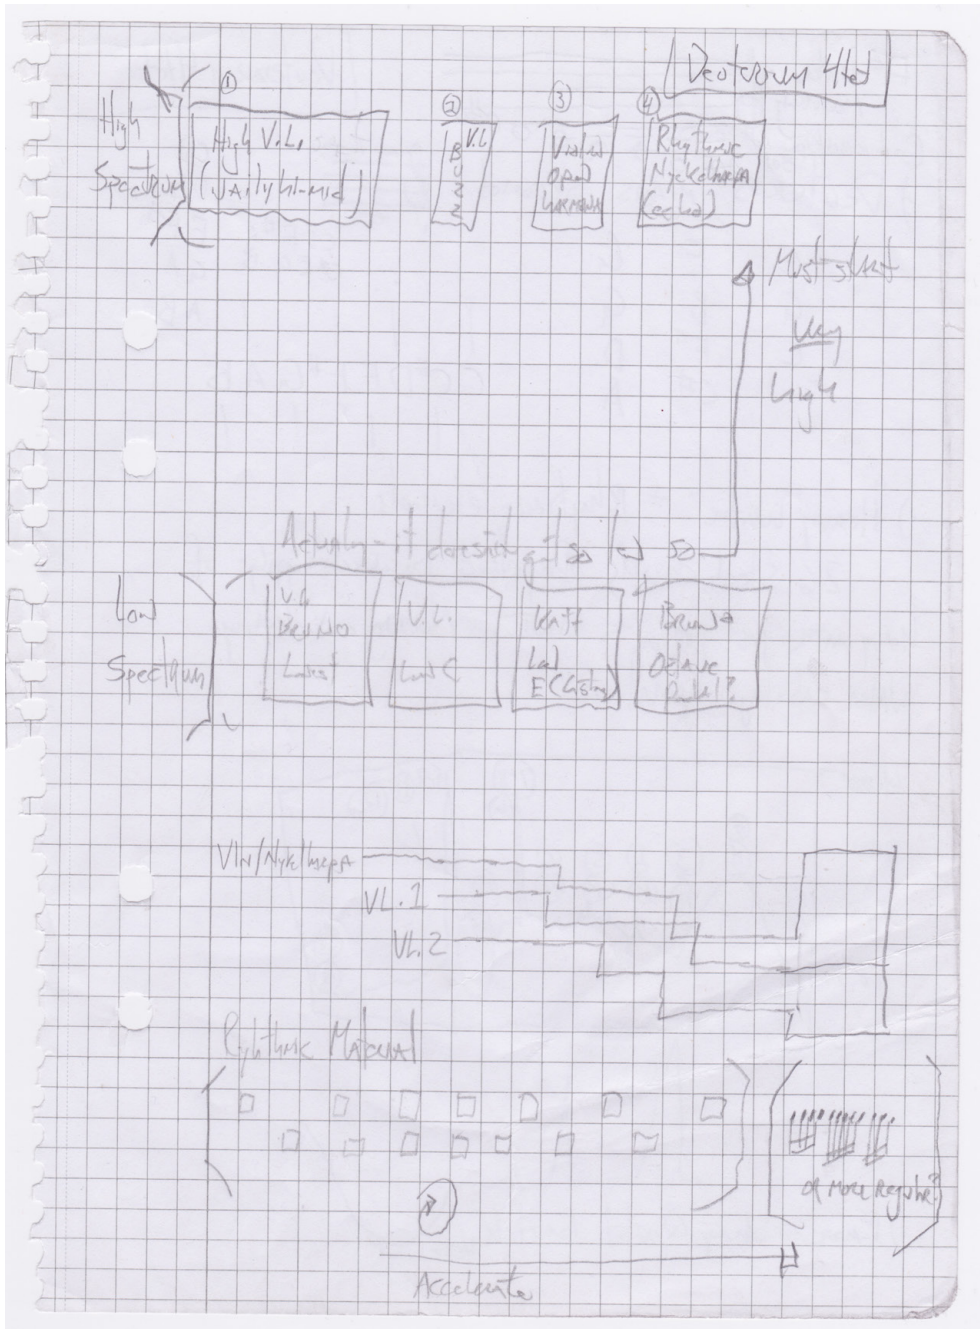 Deuterium 4tet
High
Spectrum
①
High V.L.
(Vaily hi-mid)
②
V.L.
BUZZ
③
Violin
open
④
Rhythmic
Nyckelharpa
(echo)
Must start
very
high
Actually - it doesn't get so low so
Low
Spectrum
V.L.
Bruno
Lowest
V.L.
Low C
Katt
Low
E (Gstring)
Bruno
Octave
Pedal?
Vln/Nykelharpa
VL.1
VL.2
Ryhthmic Material
or more regular?
Accelerate